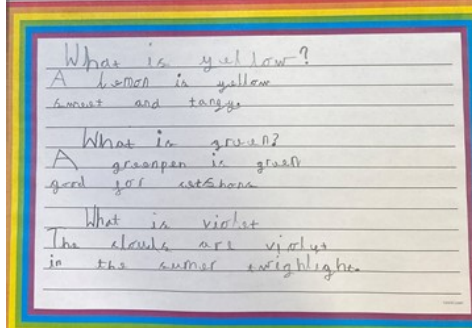 What is yellow?
A lemon is yellow
sweet and tangy.
What is green?
A greenpen is green
good for
What is violet
The clouds are violyt
in the sumer twighlight.